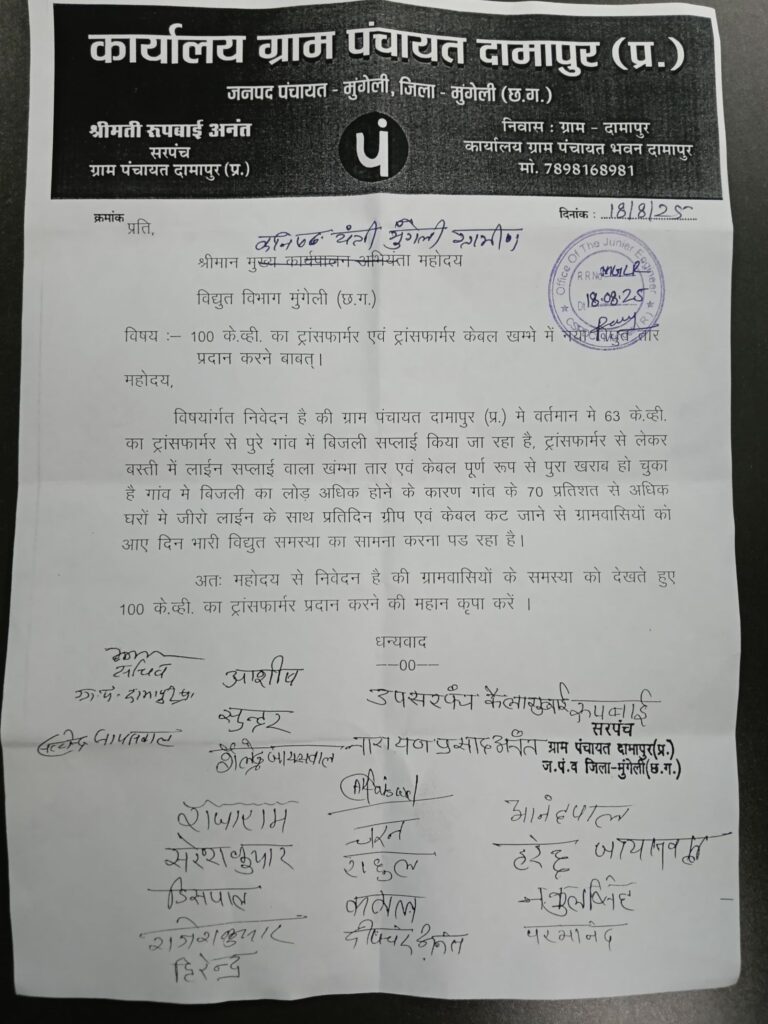 कार्यालय ग्राम पंचायत दामापुर (प्र.)
जनपद पंचायत - मुंगेली, जिला - मुंगेली (छ.ग.)
श्रीमती रुपबाई अनंत
सरपंच
ग्राम पंचायत दामापुर (प्र.)
पं
निवास : ग्राम - दामापुर
कार्यालय ग्राम पंचायत भवन दामापुर
मो. 7898168981
क्रमांक
दिनांक : 18/8/25
प्रति,
कनिष्ठ यंत्री मुंगेली ग्रामीण
श्रीमान मुख्य कार्यपालन अभियंता महोदय
विद्युत विभाग मुंगेली (छ.ग.)
Office Of The Junier Engineer
R.R.No. MGLR
Dt 18.08.25
विषय :– 100 के.व्ही. का ट्रांसफार्मर एवं ट्रांसफार्मर केबल खम्भे में नया विद्युत तार
प्रदान करने बाबत्।
महोदय,
विषयांर्गत निवेदन है की ग्राम पंचायत दामापुर (प्र.) मे वर्तमान मे 63 के.व्ही.
का ट्रांसफार्मर से पुरे गांव में बिजली सप्लाई किया जा रहा है, ट्रांसफार्मर से लेकर
बस्ती में लाईन सप्लाई वाला खंम्भा तार एवं केबल पूर्ण रूप से पुरा खराब हो चुका
है गांव मे बिजली का लोड़ अधिक होने के कारण गांव के 70 प्रतिशत से अधिक
घरों मे जीरो लाईन के साथ प्रतिदिन ग्रीप एवं केबल कट जाने से ग्रामवासियों को
आए दिन भारी विद्युत समस्या का सामना करना पड रहा है।
अतः महोदय से निवेदन है की ग्रामवासियों के समस्या को देखते हुए
100 के.व्ही. का ट्रांसफार्मर प्रदान करने की महान कृपा करें ।
धन्यवाद
––00––
सचिव
ग्रा.पं.-दामापुर प्र.
आशीष
सुन्दर
शैलेन्द्र जायसवाल
उपसरपंच कैलाश
नारायण प्रसाद अनंत
रुपबाई
सरपंच
ग्राम पंचायत दामापुर(प्र.)
ज.पं.व जिला-मुंगेली(छ.ग.)
राजाराम
चरन
आनंदपाल
सुरेशकुमार
राहुल
डिसपाल
कमल
राजेशकुमार
दीपचंद अनंत
परमानंद
हिरेन्द्र